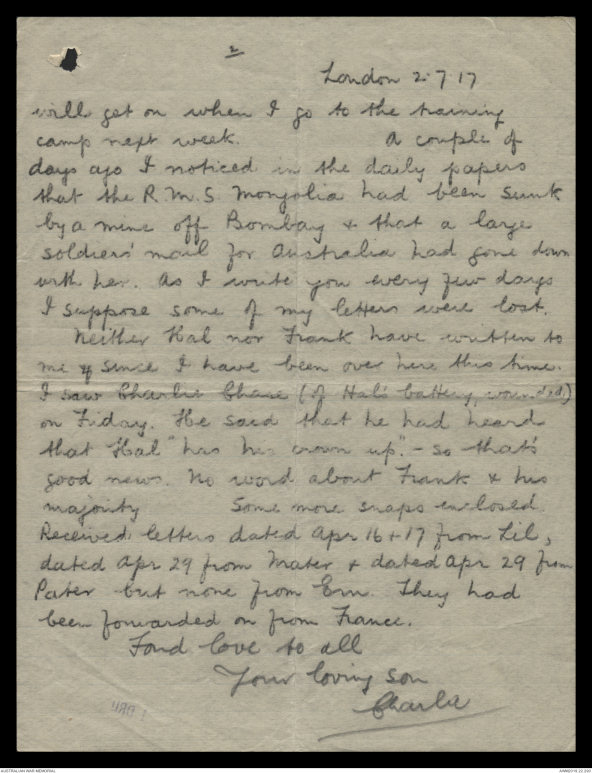 2
London 2.7.17
will get on when I go to the training
camp next week. A couple of
days ago I noticed in the daily papers
that the R.M.S. Mongolia had been sunk
by a mine off Bombay & that a large
soldiers' mail for Australia had gone down
with her. As I write you every few days
I suppose some of my letters were lost.
Neither Hal nor Frank have written to
me since I have been over here this time.
I saw Charlie Chase (of Hal's battery, wounded)
on Friday. He said that he had heard
that Hal "has his crown up." - so that's
good news. No word about Frank & his
majority Some more snaps enclosed.
Received letters dated Apr 16 + 17 from Lil,
dated Apr 29 from Mater & dated Apr 29 from
Pater but none from Ern. They had
been forwarded on from France.
Fond love to all
Your loving son
Charlie
AUSTRALIAN WAR MEMORIAL